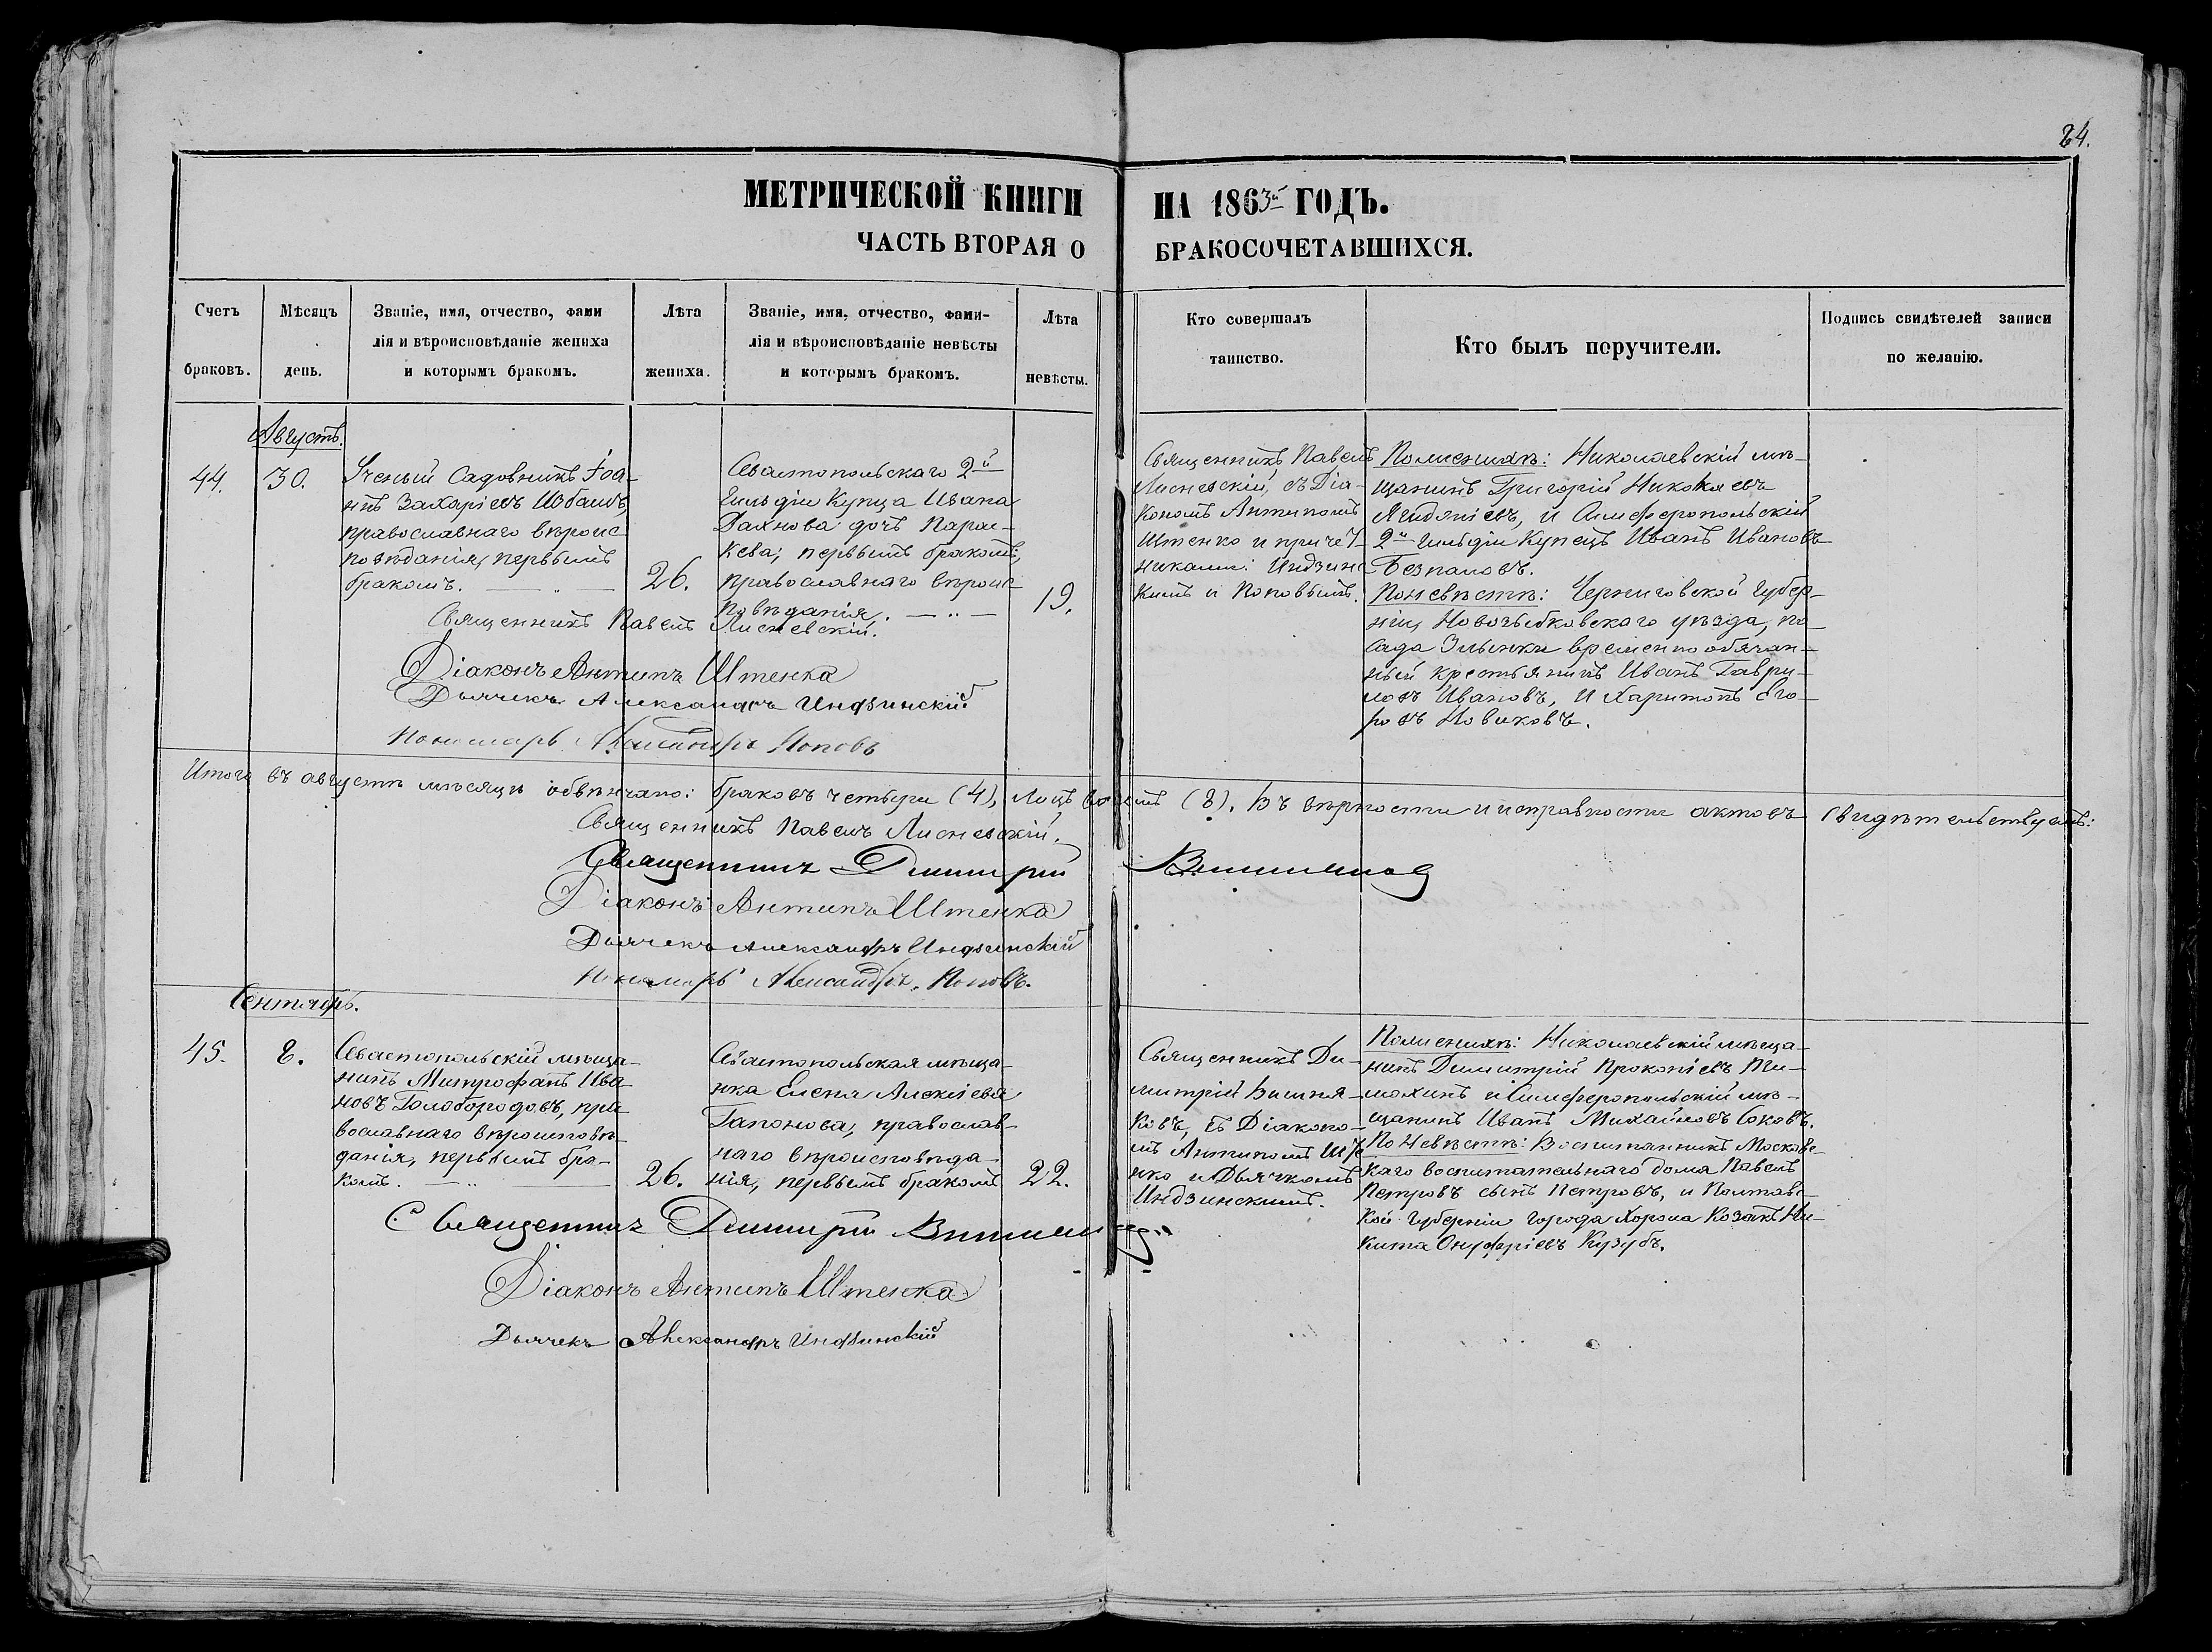 84.
МЕТРИЧЕСКОЙ КНИГИ НА 1863й ГОДЪ.
ЧАСТЬ ВТОРАЯ О БРАКОСОЧЕТАВШИХСЯ.
Счетъ
браковъ.
Мѣсяцъ
день.
Званіе, имя, отчество, фами
лія и вѣроисповѣданіе жениха
и которымъ бракомъ.
Лѣта
жениха.
Званіе, имя, отчество, фами-
лія и вѣроисповѣданіе невѣсты
и которымъ бракомъ.
Лѣта
невѣсты.
Кто совершалъ
таинство.
Кто былъ поручители.
Подпись свидѣтелей записи
по желанію.
Августъ.
44.
30.
Ученый Садовникъ Іоа-
ннъ Захаріевъ
православнаго вѣроис-
повѣданія, первымъ
бракомъ.
26.
Севастопольскаго 2й
Гильдіи Купца Ивана
Дахнова дочь Парас-
кева; первымъ бракомъ;
православнаго вѣроис-
повѣданія.
19.
Священникъ Павелъ
Лисневскій, съ Діа-
кономъ Антипомъ
Штенко и причет-
никами: Индзинс-
кимъ и Поповымъ.
По женихѣ: Николаевскій мѣ-
щанинъ Григорій Николаевъ
и Симферопольскій
2й гильдіи Купецъ Иванъ Ивановъ
Безпаловъ.
По невѣстѣ: Черниговской Губер-
ніи, Новозыбковскаго уѣзда, по-
сада Злынки временно обязан-
ный крестьянинъ Иванъ Гаври-
ловъ Ивановъ, и Харитонъ Его-
ровъ Новиковъ.
Священникъ Павелъ Лисневскій.
Діаконъ Антипъ Штенка
Дьячекъ Александръ Индзинскій
Пономарь Александръ Поповъ
Итого въ августѣ мѣсяцѣ обвѣнчано: браковъ четыри (4), лицъ восемъ (8). Въ вѣрности и исправности актовъ свидѣтельствуемъ:
Священникъ Павелъ Лисневскій.
Священникъ Димитрій Вишняковъ
Діаконъ Антипъ Штенка
Дьячекъ Александръ Индзинскій
Пономарь Александръ Поповъ.
Сентябрь.
45.
8.
Севастопольскій мѣща-
нинъ Митрофанъ Ива-
новъ Голобородовъ, пра-
вославнаго вѣроисповѣ-
данія, первымъ бра-
комъ.
26.
Севастопольская мѣща-
нка Елена Алексіева
Гапонова, православ-
наго вѣроисповѣда-
нія, первымъ бракомъ
22.
Священникъ Ди-
митрій Вишня-
ковъ, съ Діаконо-
мъ Антипомъ Ште-
нко и Дьячкомъ
Индзинскимъ.
По женихѣ: Николаевскій мѣща-
нинъ Димитрій Прокопіевъ Ти-
мохинъ и Симферопольскій мѣ-
щанинъ Иванъ Михайловъ Соковъ.
По невѣстѣ: Воспитанникъ Московс-
каго воспитательнаго дома Павелъ
Петровъ сынъ Петровъ, и Полтавс-
кой Губерніи города Хорола Козакъ Ни-
кита Онуфріевъ Кузубъ.
Священникъ Димитрій Вишняковъ
Діаконъ Антипъ Штенка
Дьячекъ Александръ Индзинскій